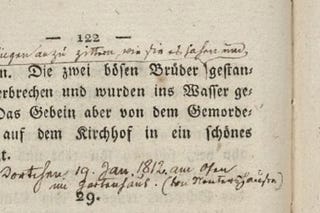 — 122 —
an zu zittern wie sie es sahen und,
n. Die zwei bösen Brüder gestan-
erbrechen und wurden ins Wasser ge-
Das Gebein aber von dem Gemorde-
auf dem Kirchhof in ein schönes
t.
Dortchen 19. Jan. 1812 am Ofen
im Gartenhaus.
29.